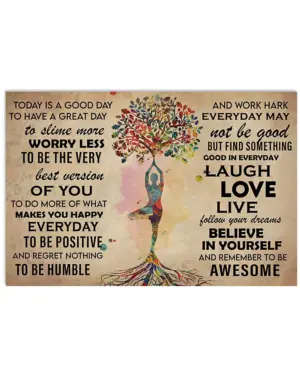 TODAY IS A GOOD DAY
TO HAVE A GREAT DAY
to slime more
WORRY LESS
TO BE THE VERY
best version
OF YOU
TO DO MORE OF WHAT
MAKES YOU HAPPY
EVERYDAY
TO BE POSITIVE
AND REGRET NOTHING
TO BE HUMBLE
AND WORK HARK
EVERYDAY MAY
not be good
BUT FIND SOMETHING
GOOD IN EVERYDAY
LAUGH
LOVE
LIVE
follow your dreams
BELIEVE
IN YOURSELF
AND REMEMBER TO BE
AWESOME